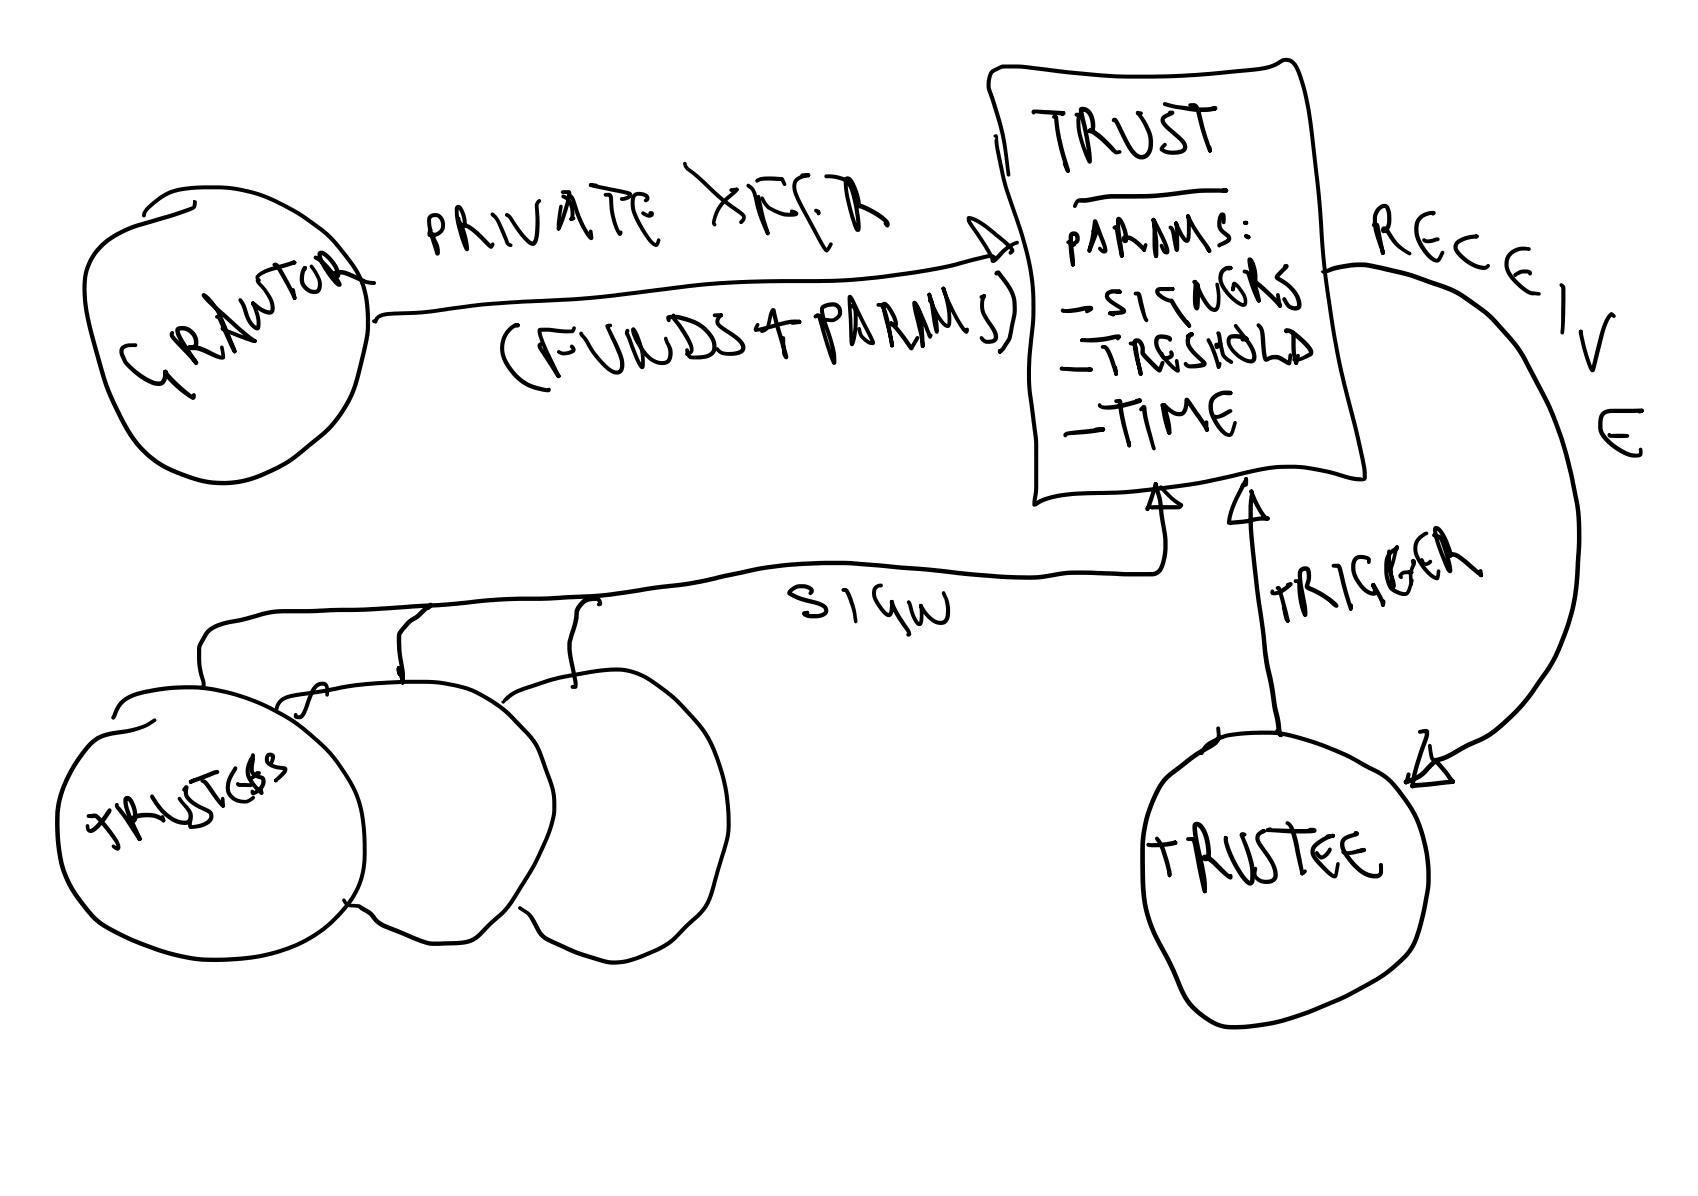 GRANTOR
PRIVATE XFER
(FUNDS + PARAMS)
TRUST
PARAMS:
- SIGNORS
- TRESHOLD
- TIME
RECEIVE
SIGN
TRIGGER
TRUSTEES
TRUSTEE